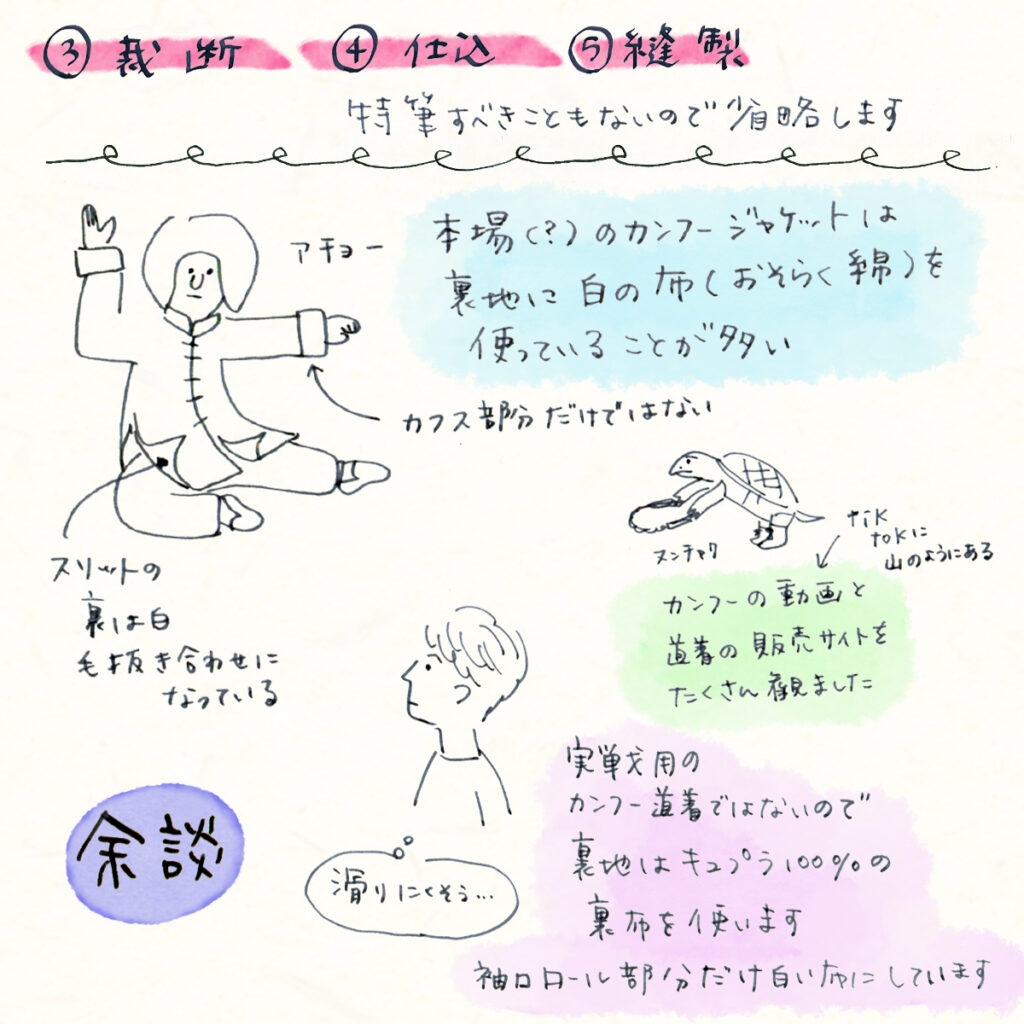 ③ 裁断 ④ 仕込 ⑤ 縫製
特筆すべきこともないので省略します
アチョー
本場(?)のカンフージャケットは
裏地に白の布(おそらく綿)を
使っていることが多い
カフス部分だけではない
スリットの
裏は白
毛抜き合わせに
なっている
ヌンチャク
tik
tokに
山のようにある
カンフーの動画と
道着の販売サイトを
たくさん観ました
余談
滑りにくそう…
実戦用の
カンフー道着ではないので
裏地はキュプラ100%の
裏布を使います
袖口ロール部分だけ白い布にしています